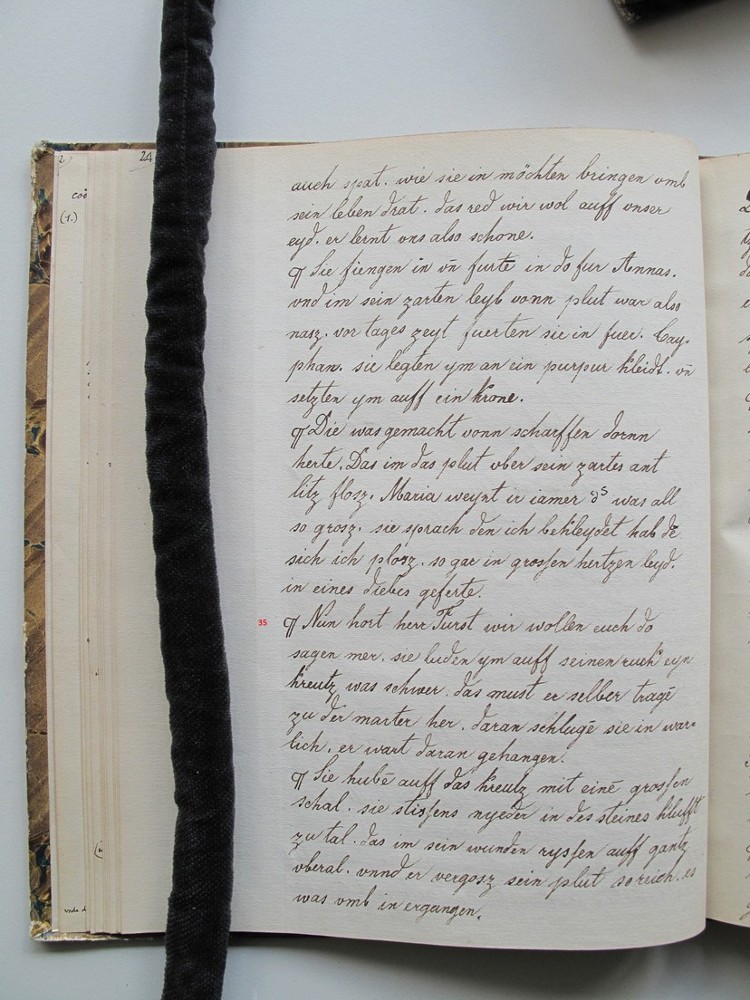 2
24
coẽ
(1.)
auch spat. wie sie in möchten bringen vmb
sein leben drat. das red wir wol auff vnser
eyd. er lernt vns also schone.
¶ Sie fiengen in vñ furtẽ in do fur Annas.
vnd im sein zarten leyb vonn plut war also
nasz. vor tages zeyt fuerten sie in fuer. Cay-
phan. sie legten ym an ein purpur kleidt. vñ
setzten ym auff ein krone.
¶ Die was gemacht vonn scharffen dornn
herte. Das im das plut vber sein zartes ant
litz flosz. Maria weynt ir iamer ds was all
so grosz. sie sprach den ich bekleydet hab dẽ
sich ich plosz. so gar in grossen hertzen leyd.
in eines diebes geferte.
35 ¶ Nun hort herr Furst wir wollen euch do
sagen mer. sie luden ym auff seinen ruck eyn
kreutz was schwer. das must er selber tragẽ
zu der marter her. daran schlugẽ sie in war-
lich. er wart daran gehangen.
¶ Sie hubẽ auff das kreutz mit einẽ grossen
schal. sie stissens nyeder in des steines klufft
zu tal. das im sein wunden ryssen auff gantz
vberal. vnnd er vergosz sein plut so reich. es
was vmb in ergangen.
vnde d